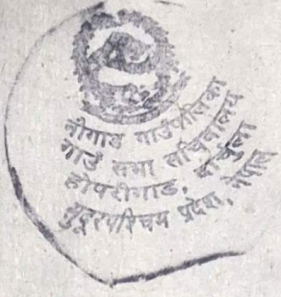 नौगाड गाउँपालिका
गाउँ सभा सचिवालय
होपरीगाड, दार्चुला
सुदूरपश्चिम प्रदेश, नेपाल